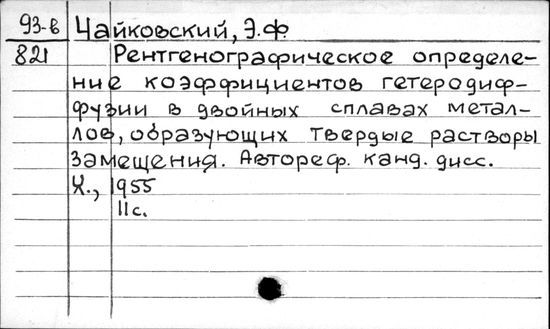 93-в Чайковский, Э.Ф
821 Рентгенографическое определе-
ние коэффициентов гетеродиф-
фузии в двойных сплавах метал-
лов, образующих твердые растворы
замещения. Автореф. канд. дисс.
Х., 1955
11с.